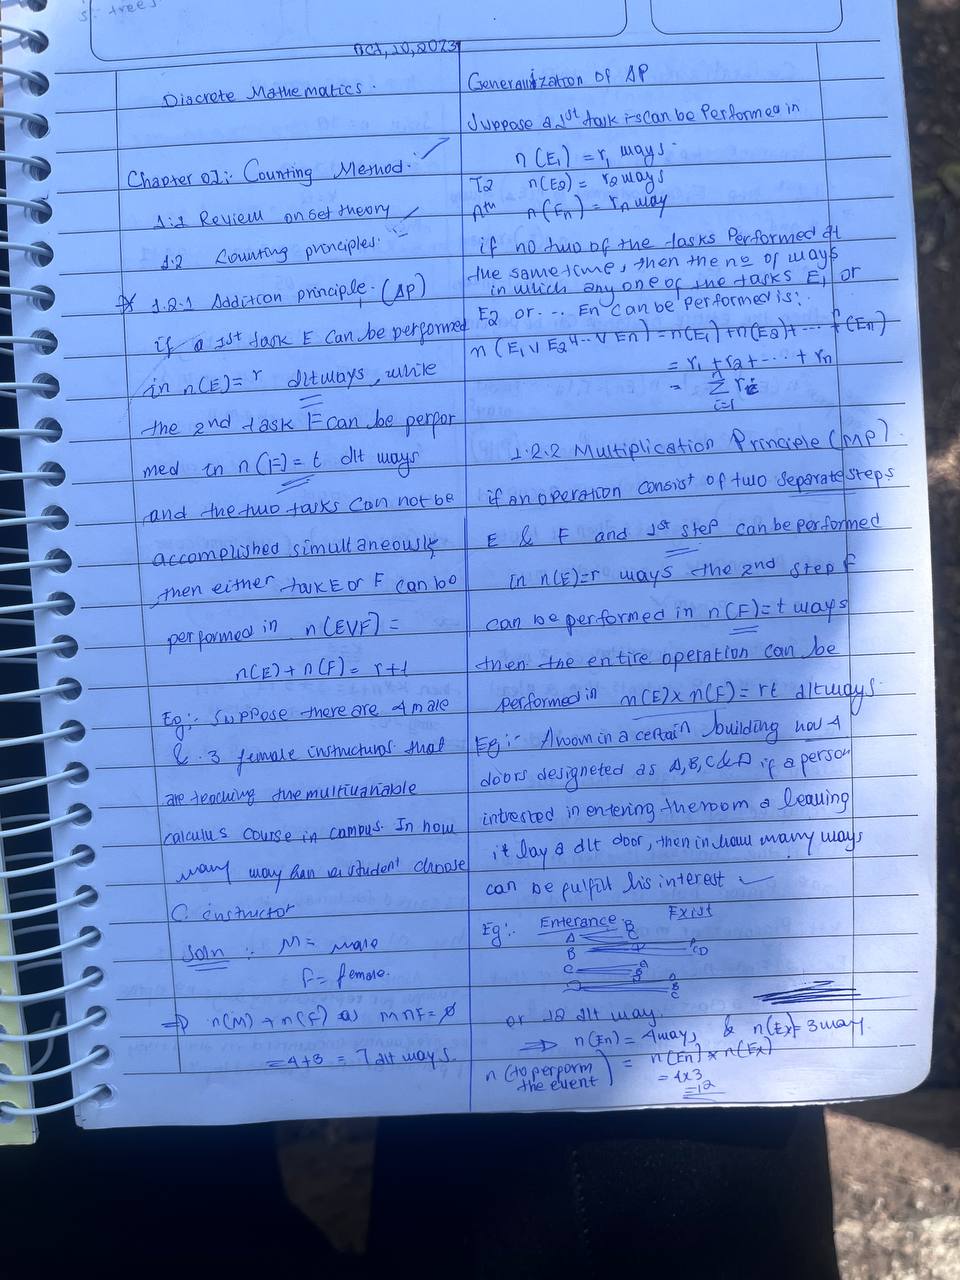 s. trees
Oct, 10, 2023
Discrete Mathematics.
Chapter 01: Counting Method.
1.1 Review on set theory
1.2 Counting principles.
* 1.2.1 Addition principle. (AP)
if a 1st task E can be performed
in n(E)=r dltways, while
the 2nd task F can be perfor
med in n(F)=t dlt ways
and the two tasks can not be
accomplished simultaneously,
then either task E or F can be
performed in n(EVF) =
n(E)+n(F)= r+t
Eg:- suppose there are 4 male
& 3 female instructors that
are teaching the multivariable
calculus course in campus. In how
many way han a student choose
C. instructor
Soln : M= male
F= female.
⇒ n(M) + n(F) as M∩F=∅
=4+3 = 7 dlt ways.
Generalization of AP
Suppose a 1st task is can be Performed in
n(E₁) = r₁ ways.
T2 n(E₂) = r₂ ways
nth n(En) = rn way
if no two of the tasks Performed at
the same time, then the no of ways
in which any one of the tasks E₁ or
E₂ or ... En can be performed is:
n(E₁ V E₂ V... V En) = n(E₁)+n(E₂)+ ... + (En)
= r₁ + r₂ + ... + rn
= n∑i=1 ri
1.2.2 Multiplication Principle (MP).
if an operation consist of two separate steps
E & F and 1st step can be performed
In n(E)=r ways the 2nd step F
can be performed in n(F)=t ways
then the entire operation can be
performed in n(E)x n(F)= rt dltways.
Eg:- A room in a certain building has 4
doors designeted as A,B,C&D if a person
intrested in entering the room & leaving
it by a dlt door, then in how many ways
can be pulfill his interest
Eg:- Enterance Exist
A B C
B A CD
C A B D
D A B C
or 12 dlt way.
⇒ n(En) = 4way, & n(Ex)= 3way.
n(to perporm the event) = n(En) x n(Ex)
= 4x3
=12